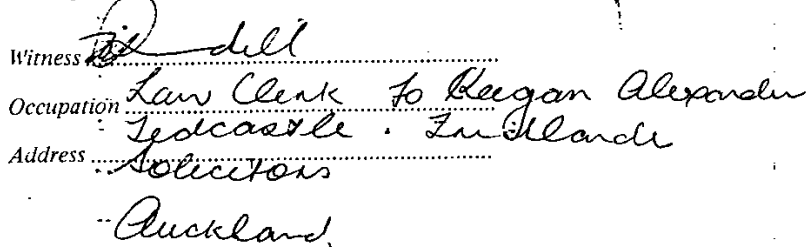 Witness
Occupation Law Clerk to Keegan Alexander
Tedcastle & Friedlander
Address
Solicitors
Auckland